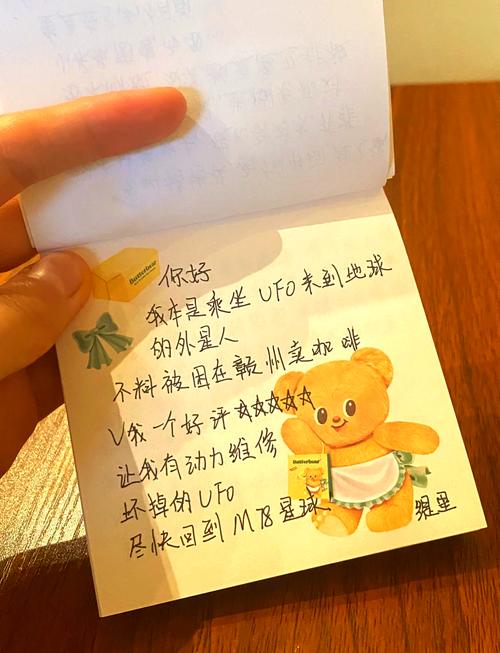 Butterbear
你好
我本是乘坐UFO来到地球
的外星人
不料被困在赣州卖咖啡
V我一个好评☆☆☆☆☆
让我有动力维修
坏掉的UFO
尽快回到M78星球
Butterbear